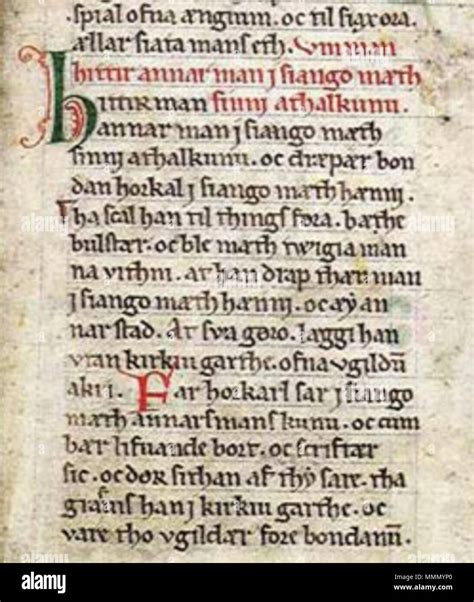 spial ofna ængium. oc til siax ora.
ællar siata mans eth. Vm man
hittir annar man i siango mæth
Hittir man sinni athalkunu.
annar man j siango mæth
sinni athalkunu. oc dræpær bon
dan horkal j siango mæth hænni.
tha scal han til things fora. bæthe
bulstær. oc ble mæth twigia man
na vitni. at han drap than man
i siango mæth hænni. oc æy an
nar stad. At sva gøro. læggi han
vtan kirkiu garthe. ofna vgildū
akri. Far horkarl sar j siango
mæth annars mans kunu. oc cum
bær lifuande bort. oc scriftær
sic. oc dør sithan af thy sare. tha
grafs han j kirkiu garthe. oc
vare tho vgildær fore bondanū.
alamy
MMMYP0